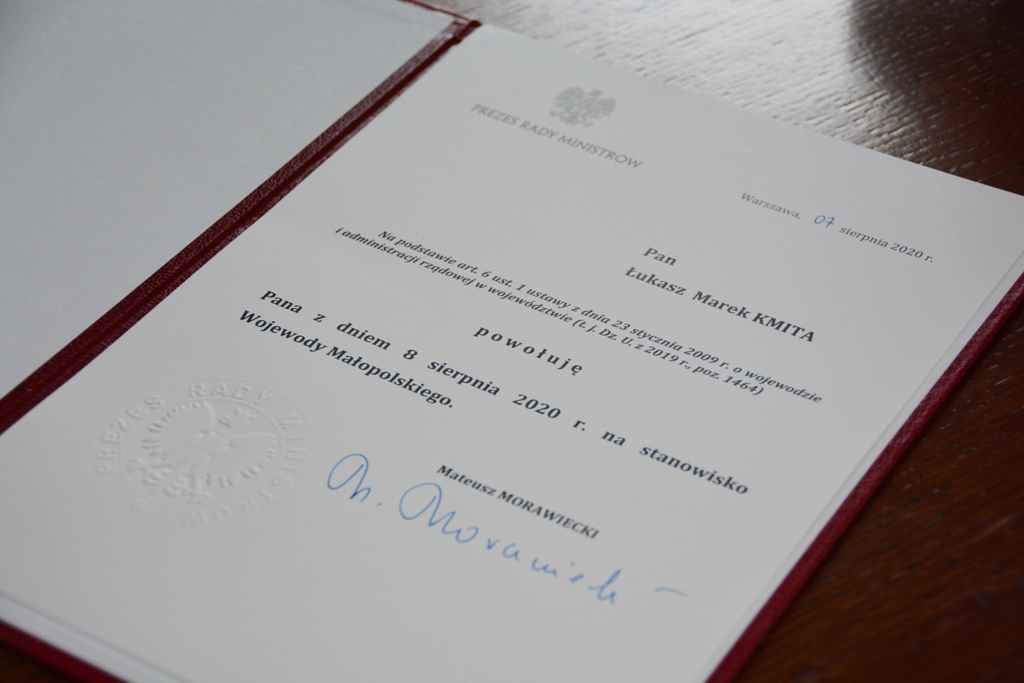 PREZES RADY MINISTRÓW
Warszawa, 07 sierpnia 2020 r.
Pan
Łukasz Marek KMITA
Na podstawie art. 6 ust. 1 ustawy z dnia 23 stycznia 2009 r. o wojewodzie
i administracji rządowej w województwie (t. j. Dz. U. z 2019 r., poz. 1464)
powołuję
Pana z dniem 8 sierpnia 2020 r. na stanowisko
Wojewody Małopolskiego.
PREZES RADY MINISTRÓW
Mateusz MORAWIECKI
M. Morawiecki